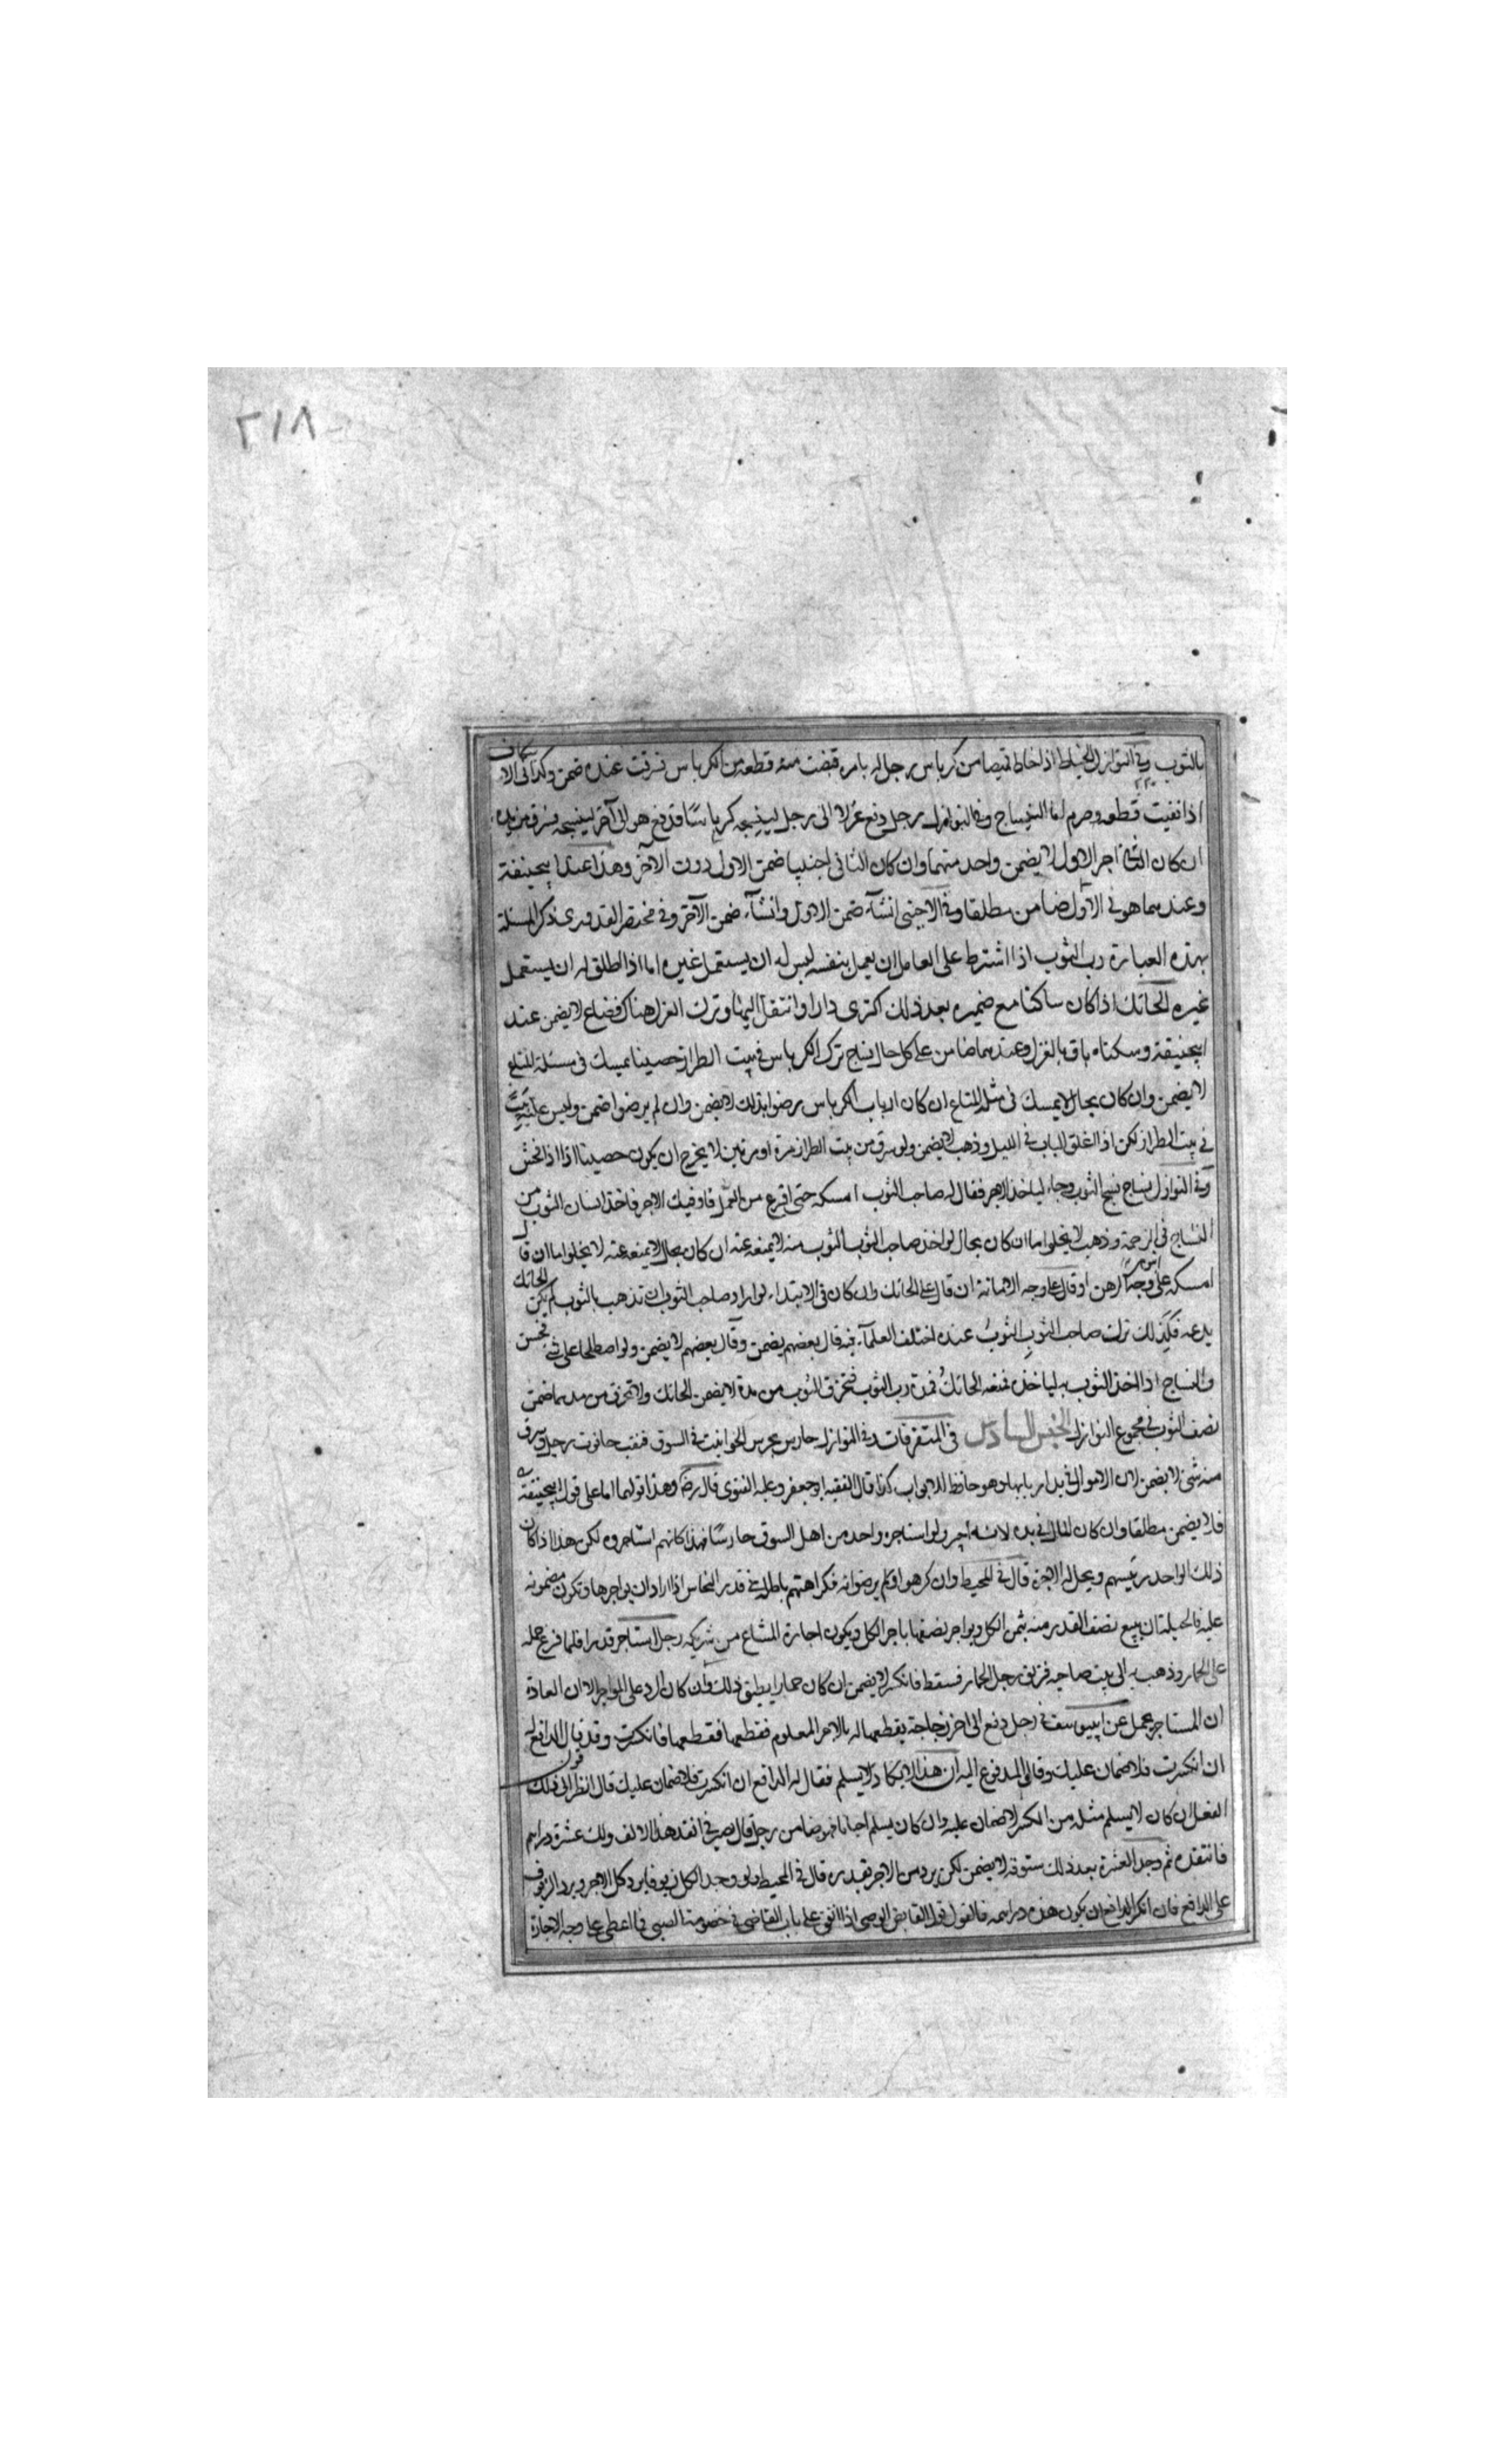 ٢١٨
بالثوب وفي النوازل الخياط اذا خاط قميصا من كرباس رجل له بامره قبضت منه قطعة من الكرباس فسرقت عنده ضمن وكذا في الاسكاف
اذا نفيت قطعه وصرم اما النساج وفي النوازل رجل دفع غزلا الى رجل لينسجه كرباسا فدفع هو الى آخر لينسجه فسرق من يده
ان كان الثاني اجير الاول لا يضمن واحد منهما وان كان الثاني اجنبيا ضمن الاول دون الآخر وهذا عند ابيحنيفة
وعندهما هو في الاول ضامن مطلقا وفي الاجنبي ان شآء ضمن الاول وان شآء ضمن الآخر وفي مختصر القدوري ذكر المسئلة
بهذه العبارة رب الثوب اذا اشترط على العامل ان يعمل بنفسه ليس له ان يستعمل غيره اما اذا اطلق له ان يستعمل
غيره الحائك اذا كان ساكنا مع صهره بعد ذلك اكترى دارا وانتقل اليها وترك الغزل هناك فضاع لا يضمن عند
ابيحنيفة وسكناه باق بالغزل وعندهما ضامن على كل حال نساج ترك الكرباس في بيت الطراز حصينا يمسك في مسئلة المتاع
لا يضمن وان كان بحال لا يمسك في مثله المتاع ان كان ارباب الكرباس رضوا بذلك لا يضمن وان لم يرضوا ضمن وليس عليه
في بيت الطراز لكن اذا اغلق الباب في الليل وذهب لا يضمن ولو سرق من بيت الطراز مرة او مرتين لا يخرج ان يكون حصينا الا اذا فحش
وفي النوازل نساج نسج الثوب وجاء لياخذ الاجر فقال له صاحب الثوب امسكه حتى افرغ من العمل فاوفيك الاجر فاخذ انسان الثوب من
النساج في الزحمة وذهب لا يخلوا اما ان كان بحال لو اخذ صاحب الثوب الثوب منه لا يمنعه عنه ان كان بحال لا يمنعه عنه لا يخلوا اما ان قال
امسكه على وجه الرهن او قال على وجه الامانة ان قال على الحائك وان كان في الابتداء لو اراد صاحب الثوب ان تذهب بالثوب لم يكن الحائك
يدعه فكذلك ترك صاحب الثوب الثوب عنده اختلف العلمآء فيه قال بعضهم يضمن وقال بعضهم لا يضمن ولو اصطلحا على شئ فحسن
والنساج اذا اخذ الثوب به لياخذ فمنعه الحائك فمده رب الثوب فتخرق الثوب من مده لا يضمن الحائك ولو تخرق من مدهما ضمن
نصف الثوب في مجموع النوازل الجنس السادس في المتفرقات في النوازل حارس يحرس الحوانيت في السوق فنقب حانوت رجل وسرق
منه شئ لا يضمن لان الاموال في يد اربابها وهو حافظ الابواب كذا قال الفقيه ابو جعفر وعليه الفتوى قال رضه وهذا قولهما اما على قول ابيحنيفة
فلا يضمن مطلقا وان كان المال في يده لانه اجير ولو استاجره واحد من اهل السوق حارسا فهذا كانهم استاجروه لكن هذا اذا كان
ذلك الواحد رئيسهم ويحل له الاجرة قال في المحيط وان كرهوا ولم يرضوا به فكراهتهم باطلة في قدر النحاس اذا اراد ان يواجرها وتكون مضمونه
عليه فالحيلة ان يبيع نصف القدر منه بثمن الكل ويواجر نصفها باجر الكل ويكون اجارة المشاع من شريكه رجل استاجر قدرا فلما فرغ حمله
على الحمار وذهب به الى بيت صاحبه فزلق رجل الحمار فسقط فانكسر لا يضمن ان كان حمارا يطيق ذلك وان كان الرد على المواجر الا ان العادة
ان المستاجر يحمل عن ابييوسف في رجل دفع الى اخر زجاجة يقطعها له بالاجر المعلوم فقطعها فقطعها فانكسرت وقد قال الدافع له
ان انكسرت فلا ضمان عليك وقال المدفوع اليه ان هذا لا يكاد لا يسلم فقال له الدافع ان انكسرت فلا ضمان عليك قال انظر الى ذلك
الفعل ان كان لا يسلم مثله من الكسر لا ضمان عليه وان كان يسلم احيانا فهو ضامن رجل قال لصيرفي انقد هذا الالف ولك عشرة دراهم
فانتقده ثم وجد العشرة بعد ذلك ستوقة لا يضمن لكن يرد من الاجر بقدره قال في المحيط ولو وجد الكل زيوفا يرد كل الاجر ويرد الزيوف
على الدافع فان انكر الدافع ان يكون هذه دراهمه فالقول قول القابض الوصي اذا انفق على باب القاضي في خصومة الصبي فما اعطى على وجه الاجارة